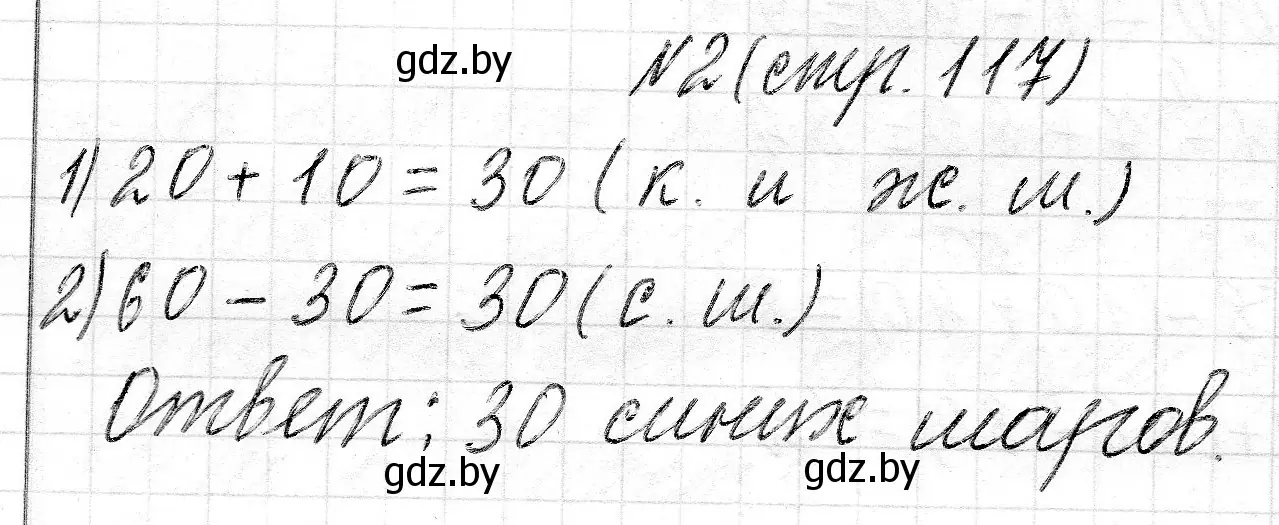 gdz.by
№2 (стр. 117)
1) 20 + 10 = 30 (к. и ж. ш.)
2) 60 - 30 = 30 (с. ш.)
Ответ: 30 синих шаров.
gdz.by
gdz.by